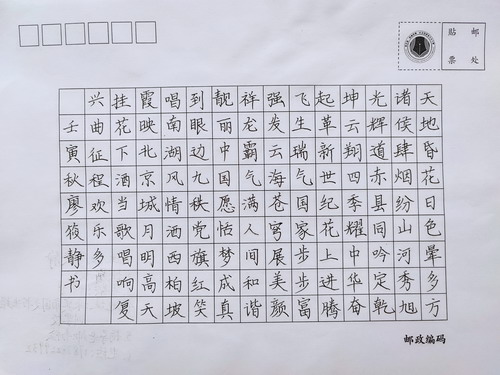 贴邮
票处
天地昏花日色晕多方
诸侯肆烟纷山河秀旭
光辉道赤县同吟定乾
坤云翔四季耀中华奋
起革新世纪花上进腾
飞生瑞气国家步步富
强发云海苍穹展美颜
祥龙霸气满人间和谐
靓丽中国愿怙梦成真
到眼边九秩党旗红笑
唱南湖风情洒西柏坡
霞映北京城月明高天
挂花下酒当歌唱响复
兴曲征程欢乐多
壬寅秋廖俊静书
邮政编码